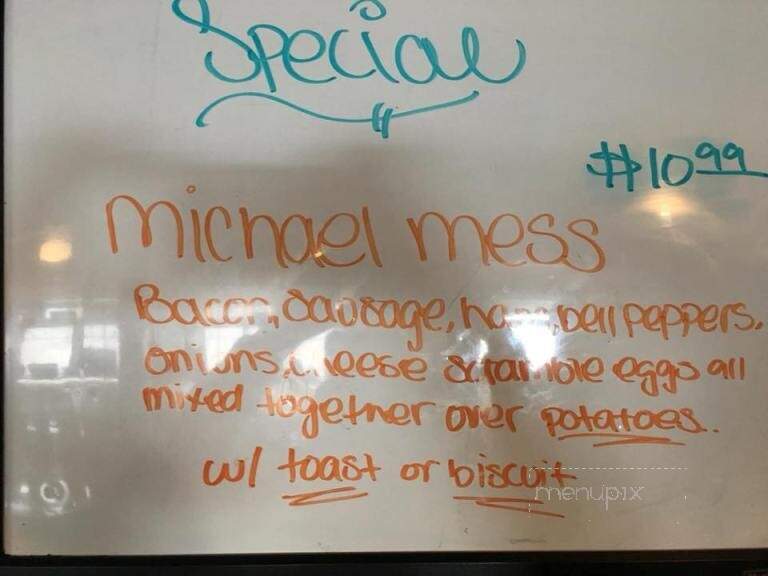 Special
$10 99
michael mess
Bacon, Sausage, ham, bell peppers,
onions, cheese scramble eggs all
mixed together over potatoes.
w/ toast or biscuit
menupix